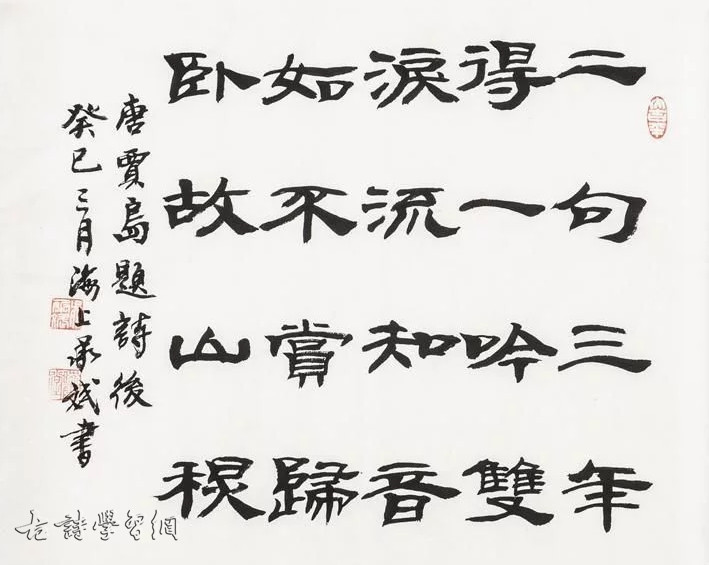 二句三年
得一吟雙
淚流知音
如不賞歸
卧故山秋
唐賈島題詩後
癸巳三月海上承斌書